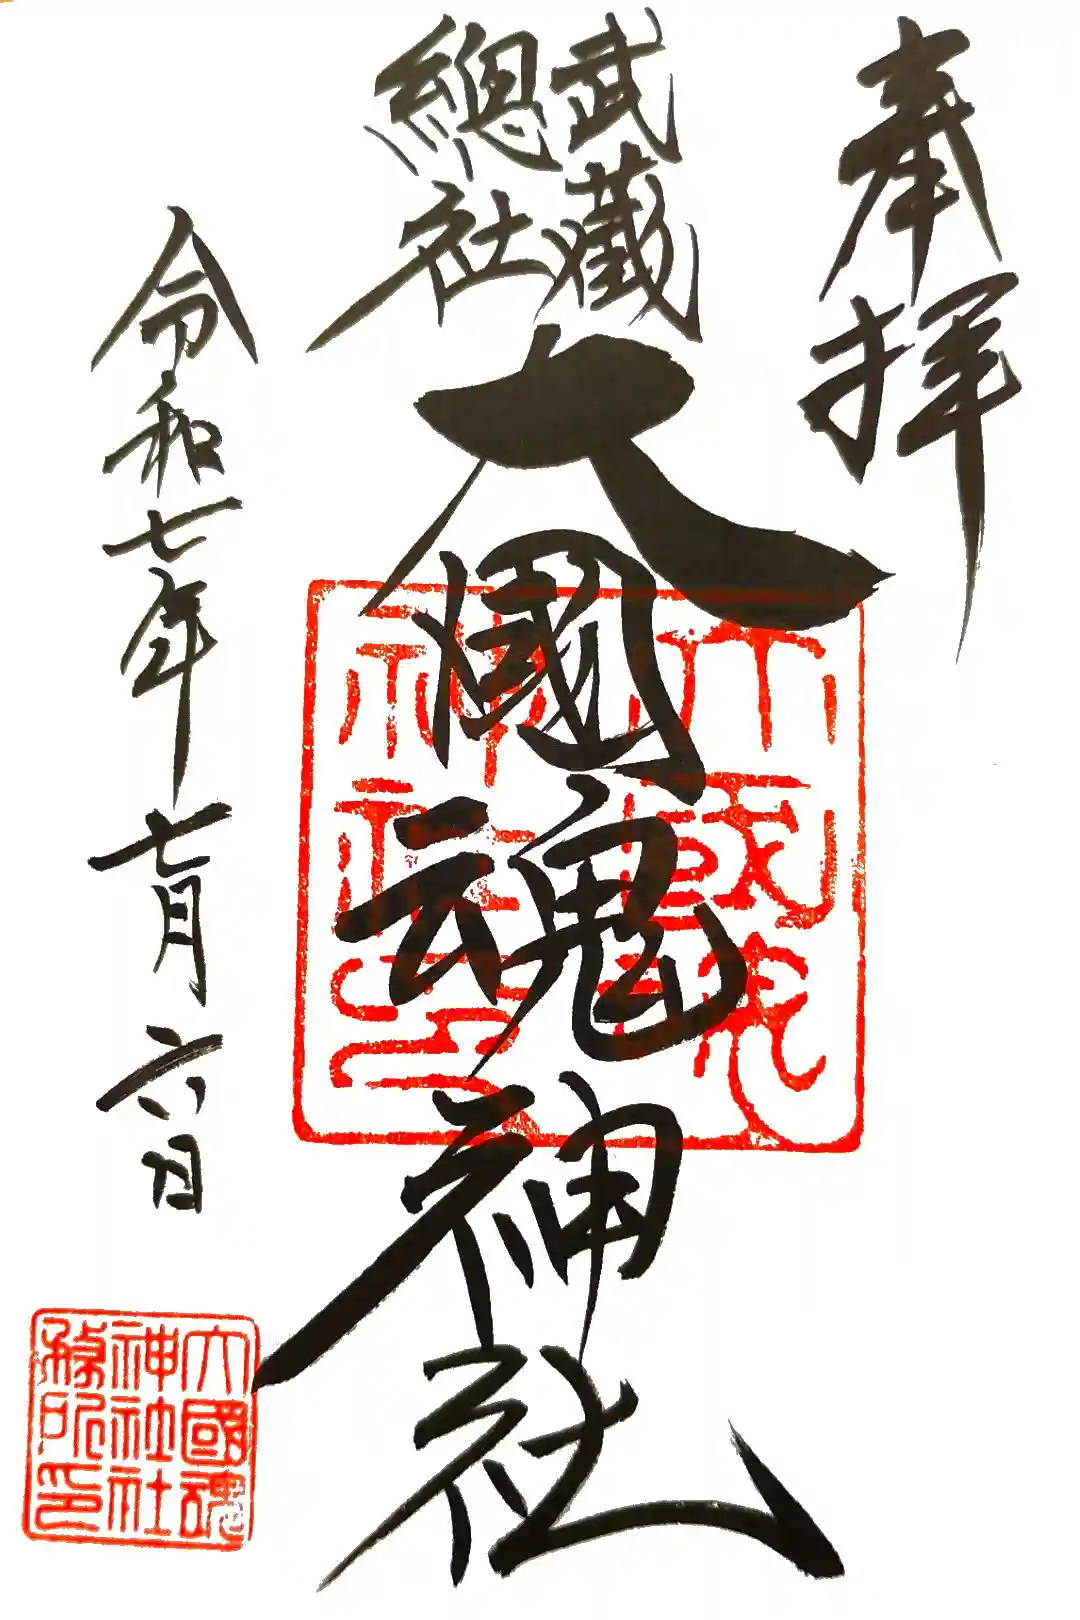 奉拝
武藏
總社
大國魂神社
令和七年七月六日
大國魂
神社之印
大國魂
神社社
務所印